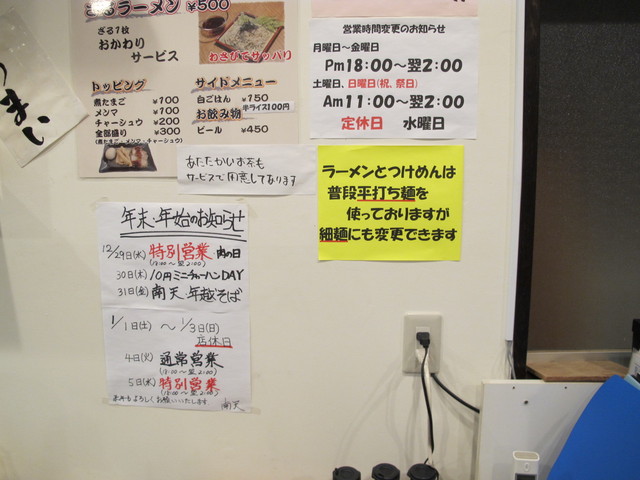 ざるラーメン ¥500
ざる1枚
おかわり
サービス
わさびでサッパリ
トッピング
煮たまご ¥100
メンマ ¥100
チャーシュー ¥200
全部盛り ¥300
(煮たまご・メンマ・チャーシュー)
サイドメニュー
白ごはん ¥150
半ライス100円
お飲み物
ビール ¥450
うまい
営業時間変更のお知らせ
月曜日～金曜日
Pm18:00～翌2:00
土曜日、日曜日(祝、祭日)
Am11:00～翌2:00
定休日 水曜日
あたたかいお茶も
サービスで用意してあります
ラーメンとつけめんは
普段平打ち麺を
使っておりますが
細麺にも変更できます
年末・年始のお知らせ
12/29日(水) 特別営業 肉の日
(18:00～翌2:00)
30日(木) 10円ミニチャーハンDAY
31日(金) 南天・年越そば
1/1日(土) ～ 1/3日(日)
店休日
4日(火) 通常営業
(18:00～翌2:00)
5日(水) 特別営業
(18:00～翌2:00)
よろしくお願いいたします
南天